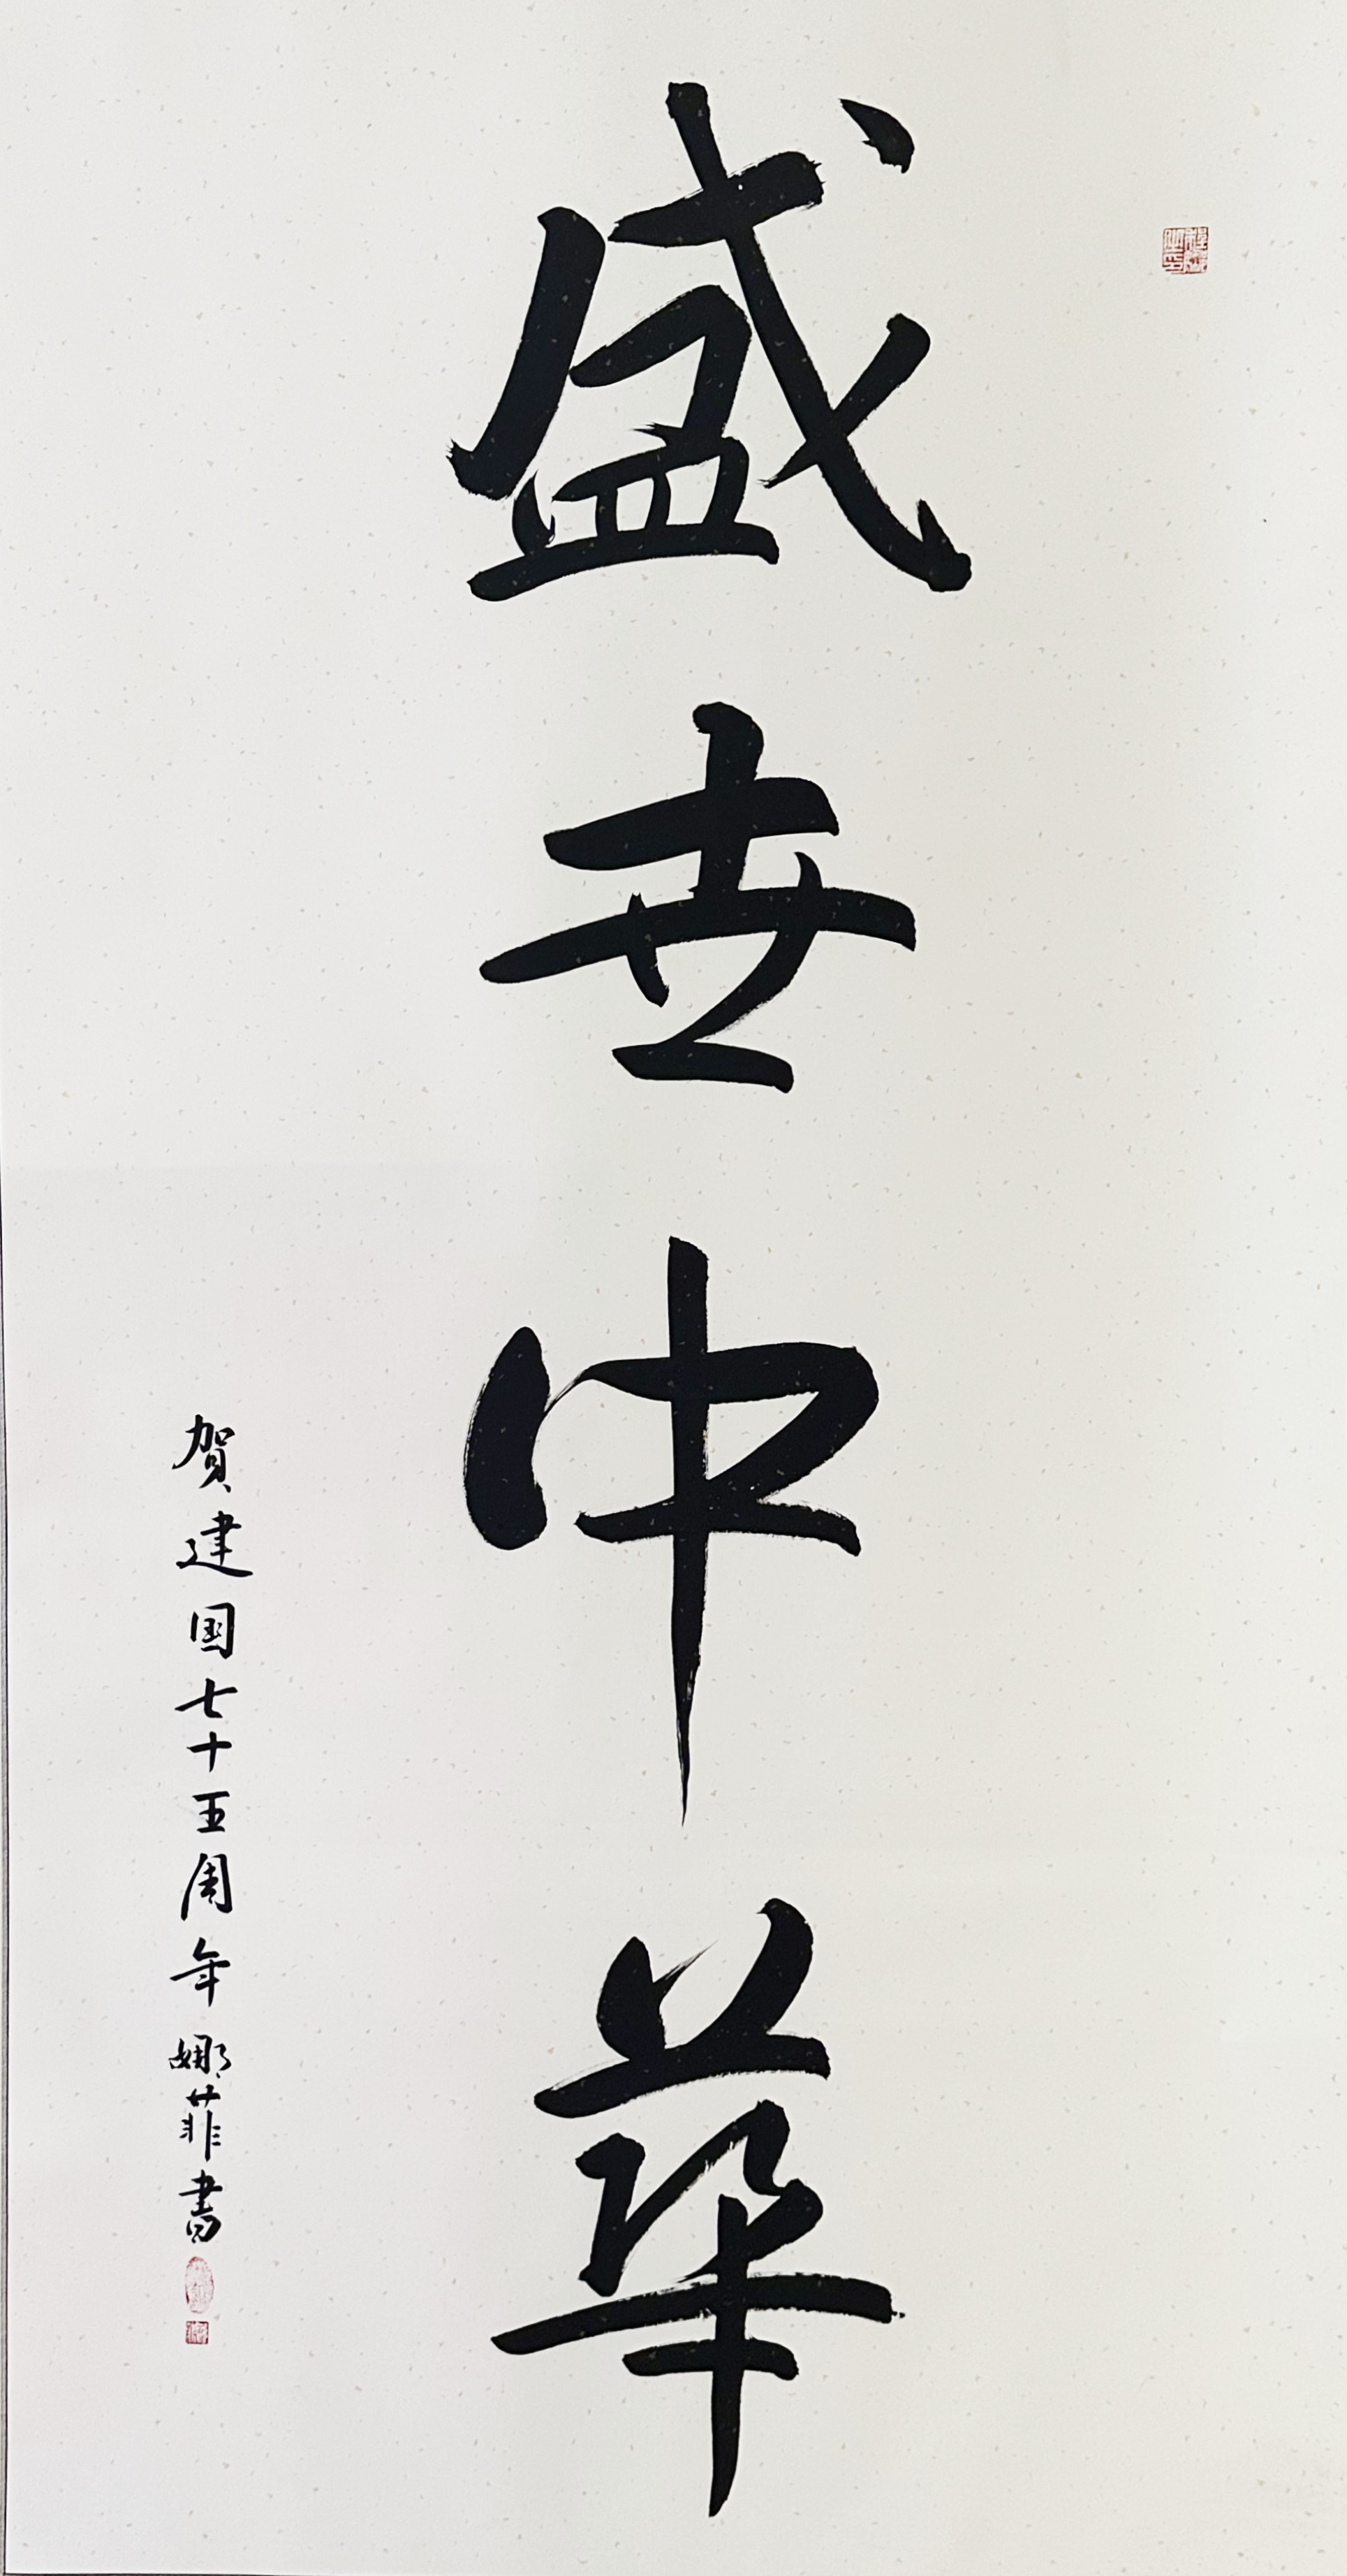 盛世中華
賀建国七十五周年 娜菲書